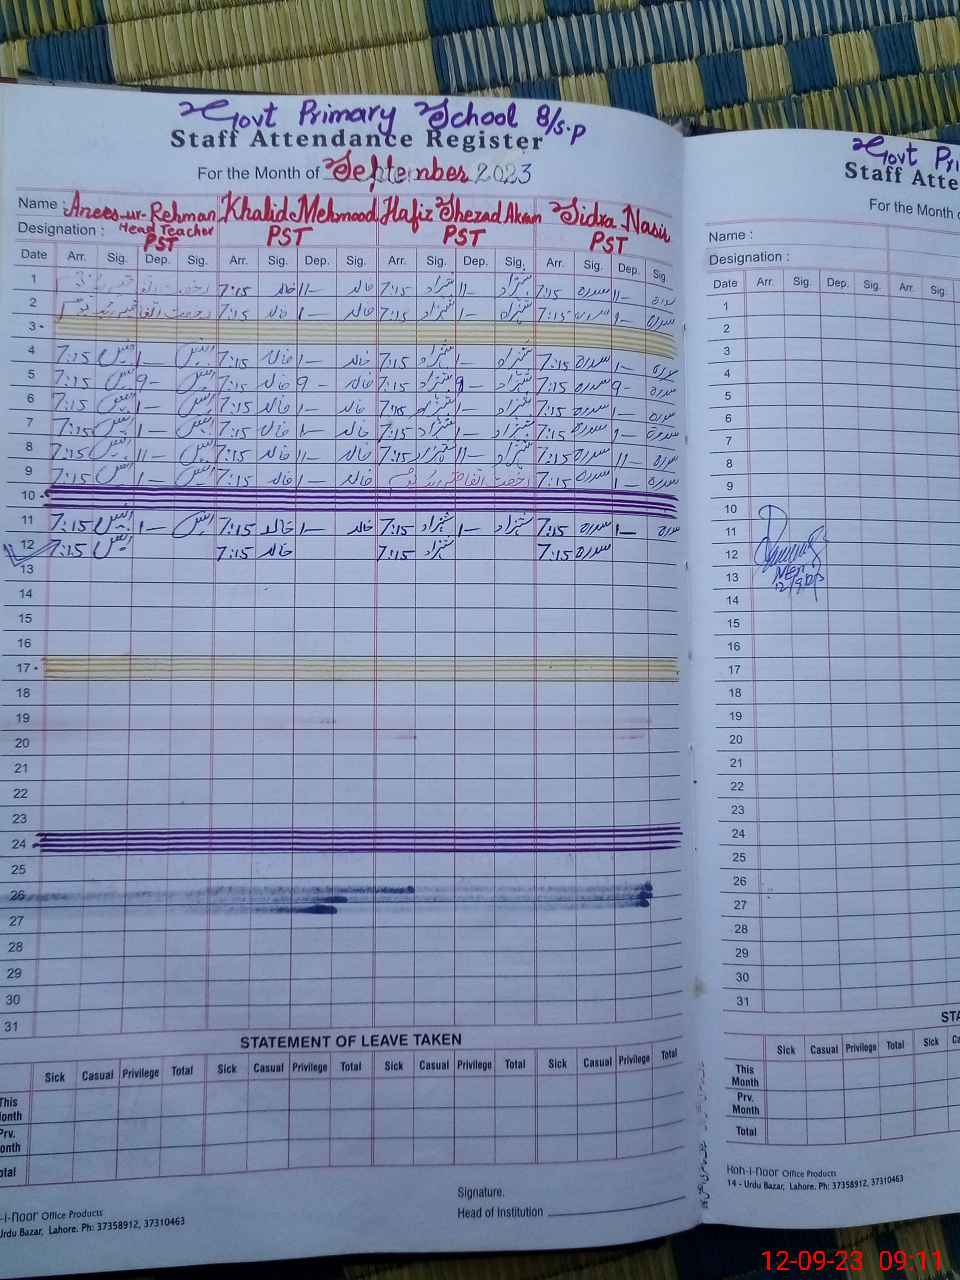 Govt Primary School 8/s.p
Staff Attendance Register
For the Month of September 2023
Name : Anees-ur-Rehman Khalid Mehmood Hafiz Shezad Akram Sidra Nasir
Designation : Head Teacher PST PST PST PST
Date Arr. Sig. Dep. Sig. Arr. Sig. Dep. Sig. Arr. Sig. Dep. Sig. Arr. Sig. Dep. Sig.
1 رخصت اتفاقیہ 7:15 خالد 11- خالد 7:15 شہزاد 11- شہزاد 7:15 سدرہ 11- سدرہ
2 رخصت اتفاقیہ 7:15 خالد 1- خالد 7:15 شہزاد 1- شہزاد 7:15 سدرہ سدرہ
3
4 7:15 انیس 1- انیس 7:15 خالد 1- خالد 7:15 شہزاد 1- شہزاد 7:15 سدرہ 1- سدرہ
5 7:15 انیس 9- انیس 7:15 خالد 9- خالد 7:15 شہزاد 9- شہزاد 7:15 سدرہ 9- سدرہ
6 7:15 انیس 1- انیس 7:15 خالد 1- خالد 7:15 شہزاد 1- شہزاد 7:15 سدرہ 1- سدرہ
7 7:15 انیس 1- انیس 7:15 خالد 1- خالد 7:15 شہزاد 1- شہزاد 7:15 سدرہ 1- سدرہ
8 7:15 انیس 11- انیس 7:15 خالد 11- خالد 7:15 شہزاد 11- شہزاد 7:15 سدرہ 11- سدرہ
9 7:15 انیس 1- انیس 7:15 خالد 1- خالد رخصت اتفاقیہ 7:15 سدرہ 1- سدرہ
10
11 7:15 انیس 1- انیس 7:15 خالد 1- خالد 7:15 شہزاد 1- شہزاد 7:15 سدرہ 1- سدرہ
12 7:15 انیس 7:15 خالد 7:15 شہزاد 7:15 سدرہ
13
14
15
16
17
18
19
20
21
22
23
24
25
26
27
28
29
30
31
STATEMENT OF LEAVE TAKEN
Sick Casual Privilege Total Sick Casual Privilege Total Sick Casual Privilege Total Sick Casual Privilege Total
This
Month
Prv.
onth
otal
Signature.
Head of Institution
-i-noor Office Products
Urdu Bazar, Lahore. Ph: 37358912, 37310463
Govt Pri
Staff Atte
For the Month o
Name :
Designation :
Date Arr. Sig. Dep. Sig. Arr. Sig.
1
2
3
4
5
6
7
8
9
10
11
12
13
14
15
16
17
18
19
20
21
22
23
24
25
26
27
28
29
30
31
STA
Sick Casual Privilege Total Sick C
This
Month
Prv.
Month
Total
Koh-i-noor Office Products
14 - Urdu Bazar, Lahore. Ph: 37358912, 37310463
12-09-23 09:11